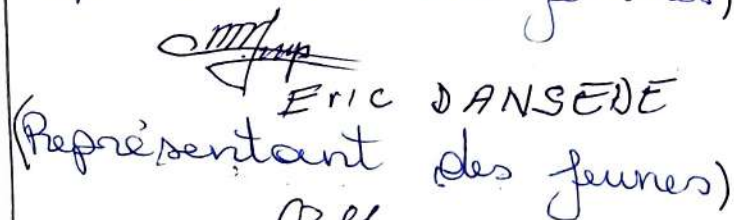 Eric DANSEDE
(Représentant des jeunes)